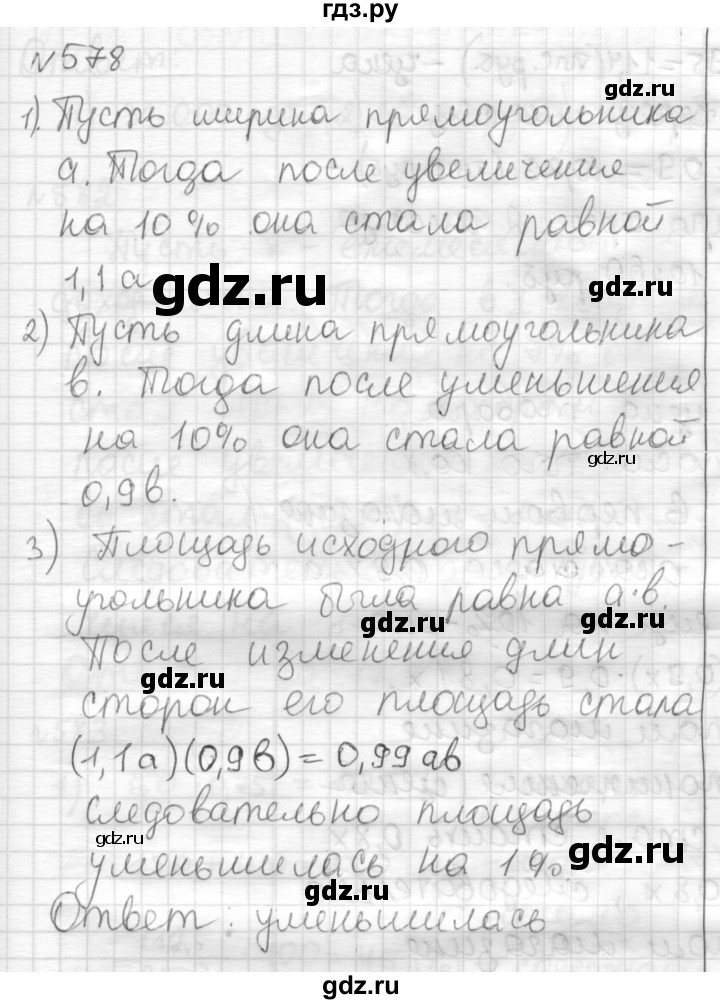 гдз.ру
№578
gdz.ru
1). Пусть ширина прямоугольника
gdz.ru
а. Тогда после увеличения
на 10% она стала равной
1,1а
gdz.ru
gdz.ru
2) Пусть длина прямоугольника
в. Тогда после уменьшения
на 10% она стала равной
gdz.ru
0,9в.
3) Площадь исходного прямо-
угольника была равна а·в.
gdz.ru
gdz.ru
После изменения длин
gdz.ru
сторон его площадь стала
(1,1а)(0,9в)=0,99ав
следовательно площадь
gdz.ru
уменьшилась на 1%
gdz.ru
gdz.ru
Ответ: уменьшилась
gdz.ru
gdz.ru